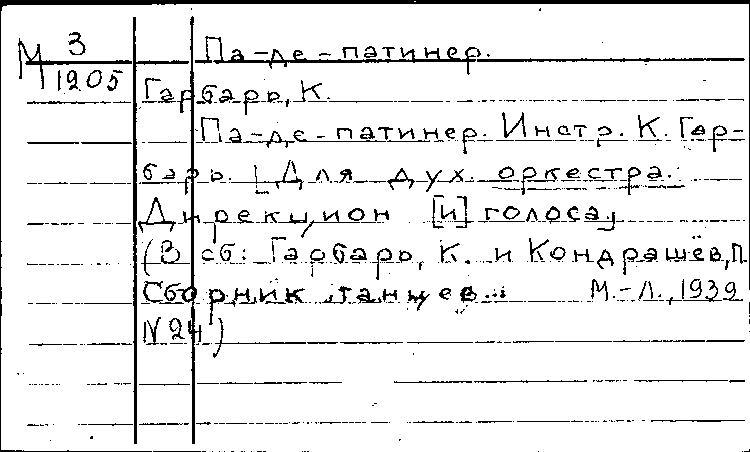 М 3 Па-де-патинер.
1905 Гарбарь, К.
Па-де-патинер. Инстр. К. Гар-
барь. [Для дух. оркестра.
Дирекцион [и] голоса]
(В сб: Гарбарь, К. и Кондрашёв, П.
Сборник танцев... М.-Л., 1939
N 24)